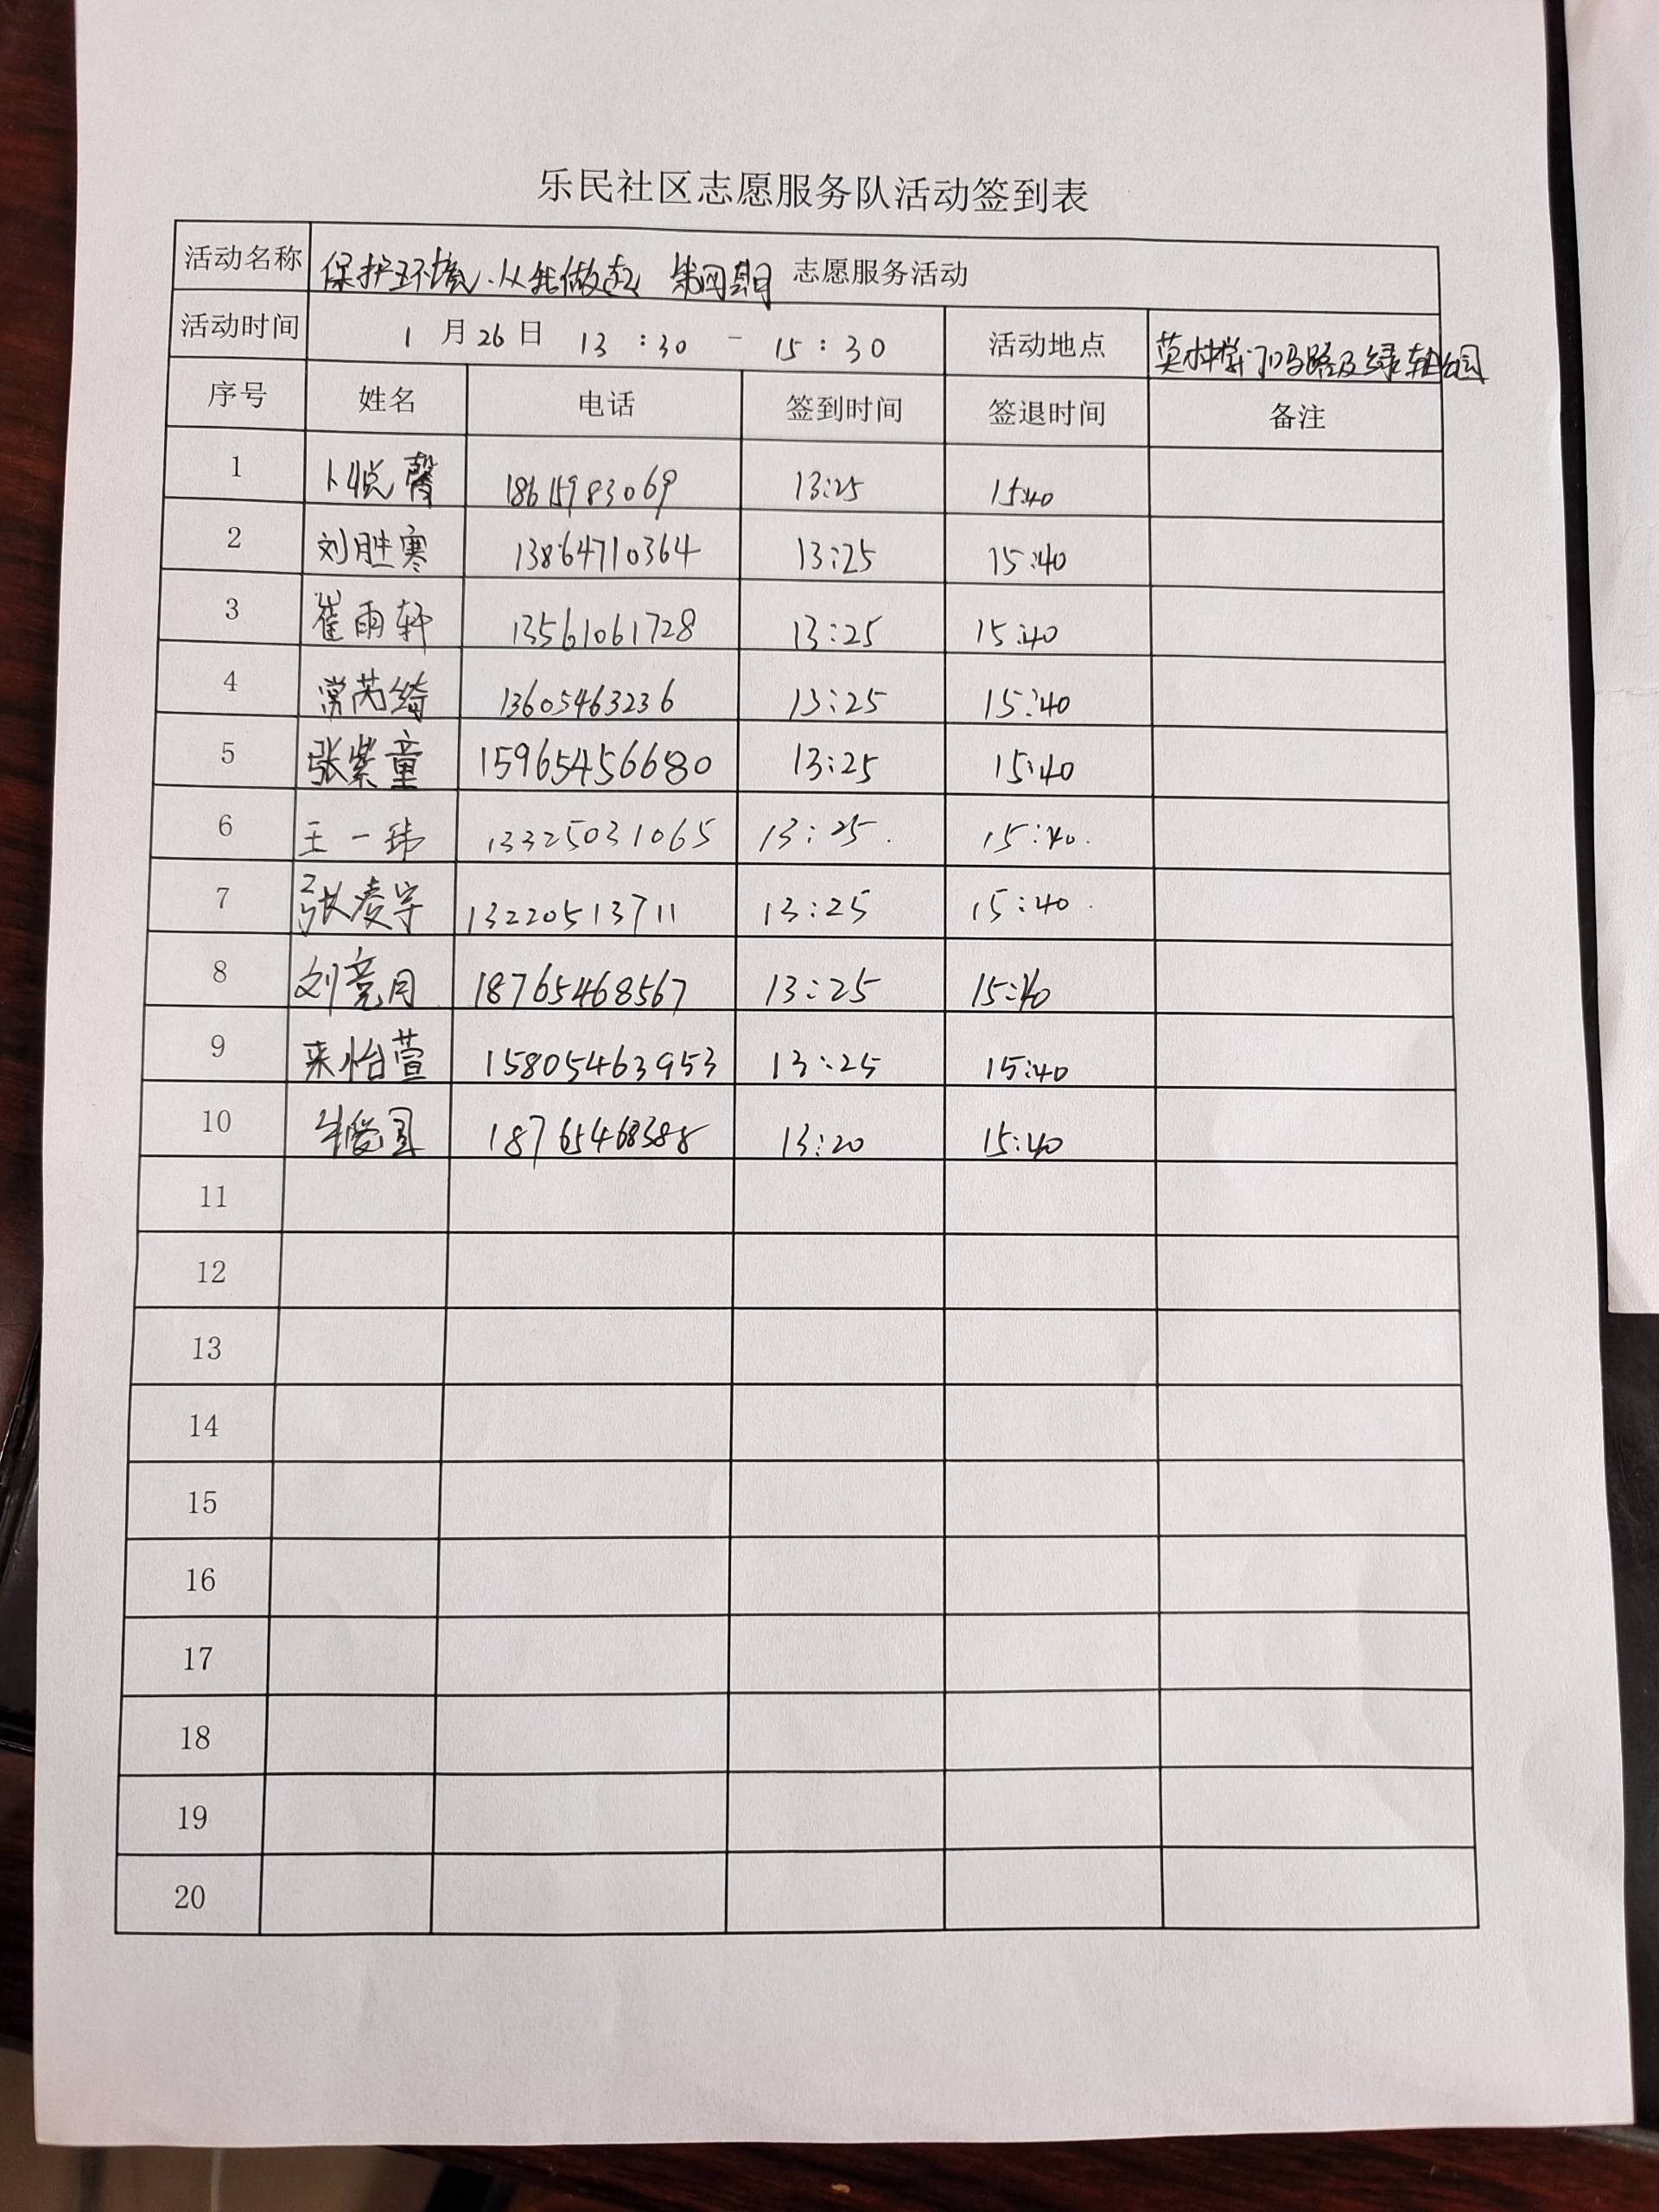 乐民社区志愿服务队活动签到表
活动名称 保护环境、从我做起 第四期 志愿服务活动
活动时间 1月26日 13:30 - 15:30 活动地点 门口马路及绿轴公园
序号 姓名 电话 签到时间 签退时间 备注
1 卜悦馨 18615983069 13:25 15:40
2 刘胜寒 13864710364 13:25 15:40
3 崔雨轩 13561061728 13:25 15:40
4 常芮绮 13605463236 13:25 15:40
5 张紫童 15965456680 13:25 15:40
6 王一玮 13325031065 13:25. 15:40.
7 张凌宇 13220513711 13:25 15:40.
8 刘竞月 18765468567 13:25 15:40
9 来怡萱 15805463953 13:25 15:40
10 18765468388 13:20 15:40
11
12
13
14
15
16
17
18
19
20